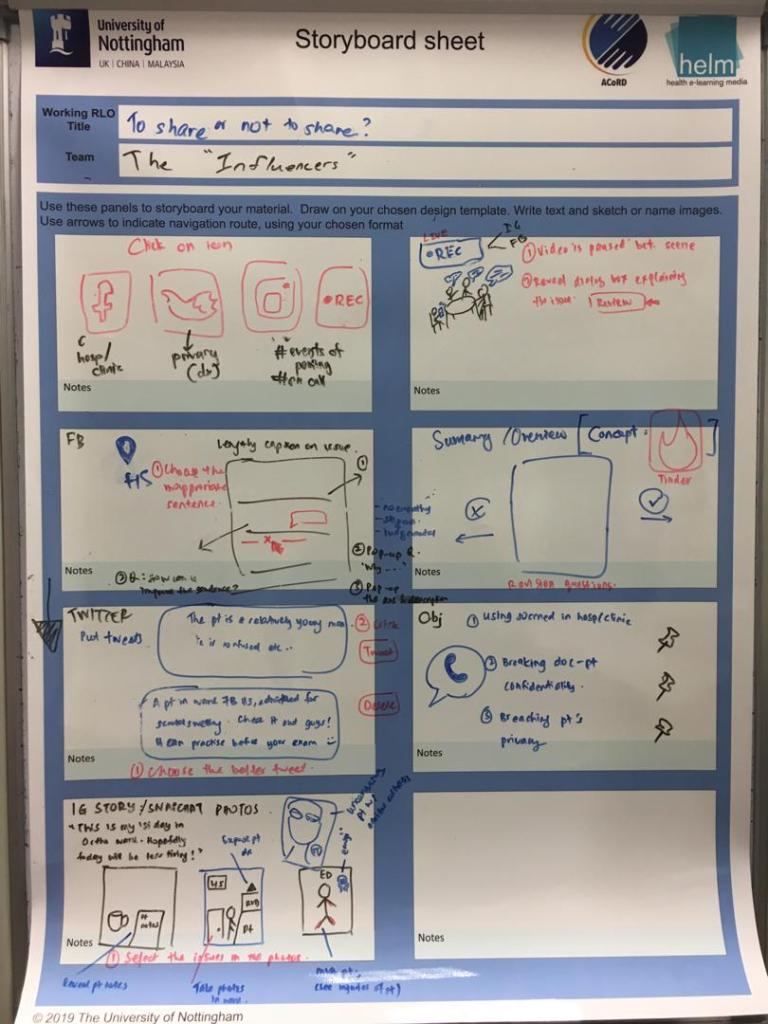 University of
Nottingham
UK | CHINA | MALAYSIA
Storyboard sheet
ACoRD
helm
health e-learning media
Working RLO
Title
To share or not to share?
Team
The "Influencers"
Use these panels to storyboard your material. Draw on your chosen design template. Write text and sketch or name images.
Use arrows to indicate navigation route, using your chosen format
Click on icon
REC
hosp/
clinic
privacy
(dr)
# events of
posting
#on call
Notes
LIVE
REC
IG
FB
① Video is paused bet. scene
② Reveal dialog box explaining
the issue.
Review
Notes
FB
Lengthy caption on issue.
① Choose the
inappropriate
sentence.
①
- no empathy
② Pop-up Q.
"Why ...."
③ Pop-up
③ Q: How can u
improve the sentence?
Notes
Summary / Overview [Concept:
Tinder
Revision questions.
Notes
TWITTER
Put tweets
The pt is a relatively young man
is confused etc..
② Click
Tweet
A pt in ward 7B HS, admitted for
scrotal swelling. Check it out guys!
U can practise before your exam
Delete
① Choose the better tweet.
Notes
Obj
① Using socmed in hosp/clinic
② Breaking doc-pt
confidentiality.
③ Breaching pt's
privacy
Notes
IG STORY / SNAPCHAT PHOTOS
"This is my 1st day in
Ortho ward. Hopefully
today will be less tiring!"
Expose pt
45
pt
notes
ED
pt
Notes
① Select the issues in the photos.
Reveal pt notes
Take photos
in ward
(see injuries of pt)
Notes
© 2019 The University of Nottingham